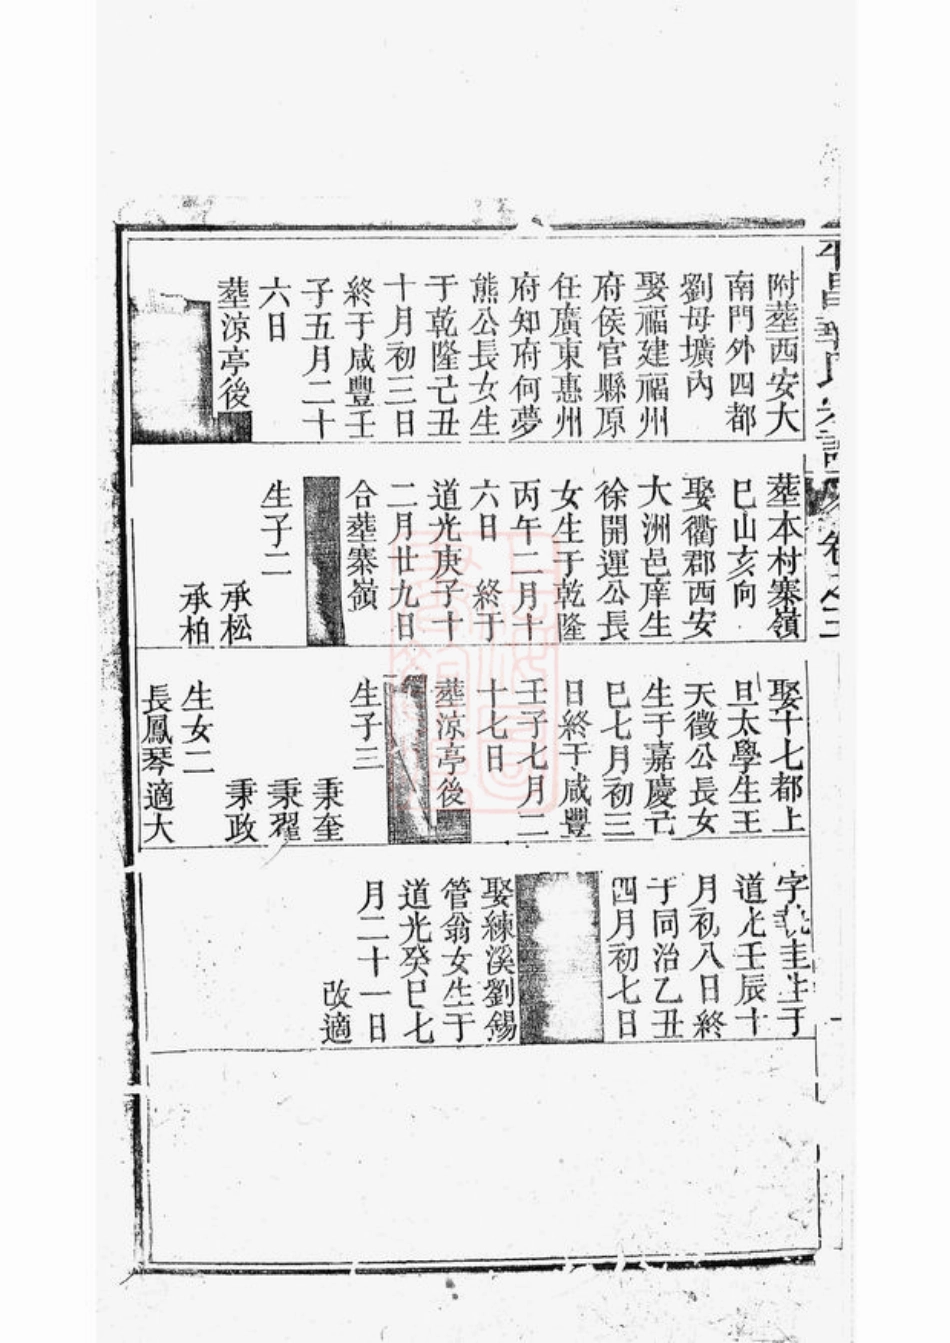 附塟西安大
南門外四都
劉母壙內
娶福建福州
府侯官縣原
任廣東惠州
府知府何夢
熊公長女生
于乾隆己丑
十月初三日
終于咸豐壬
子五月二十
六日
塟涼亭後
塟本村寨嶺
巳山亥向
娶衢郡西安
大洲邑庠生
徐開運公長
女生于乾隆
丙午二月十
六日 終于
道光庚子十
二月廿九日
合塟寨嶺
生子二
承松
承柏
娶十七都上
旦太學生王
天徵公長女
生于嘉慶己
巳七月初三
日終于咸豐
壬子七月二
十七日
塟涼亭後
生子三
秉奎
秉翟
秉政
生女二
長鳳琴適大
字 圭生于
道光壬辰十
月初八日終
于同治乙丑
四月初七日
娶練溪劉錫
管翁女生于
道光癸巳七
月二十一日
改適